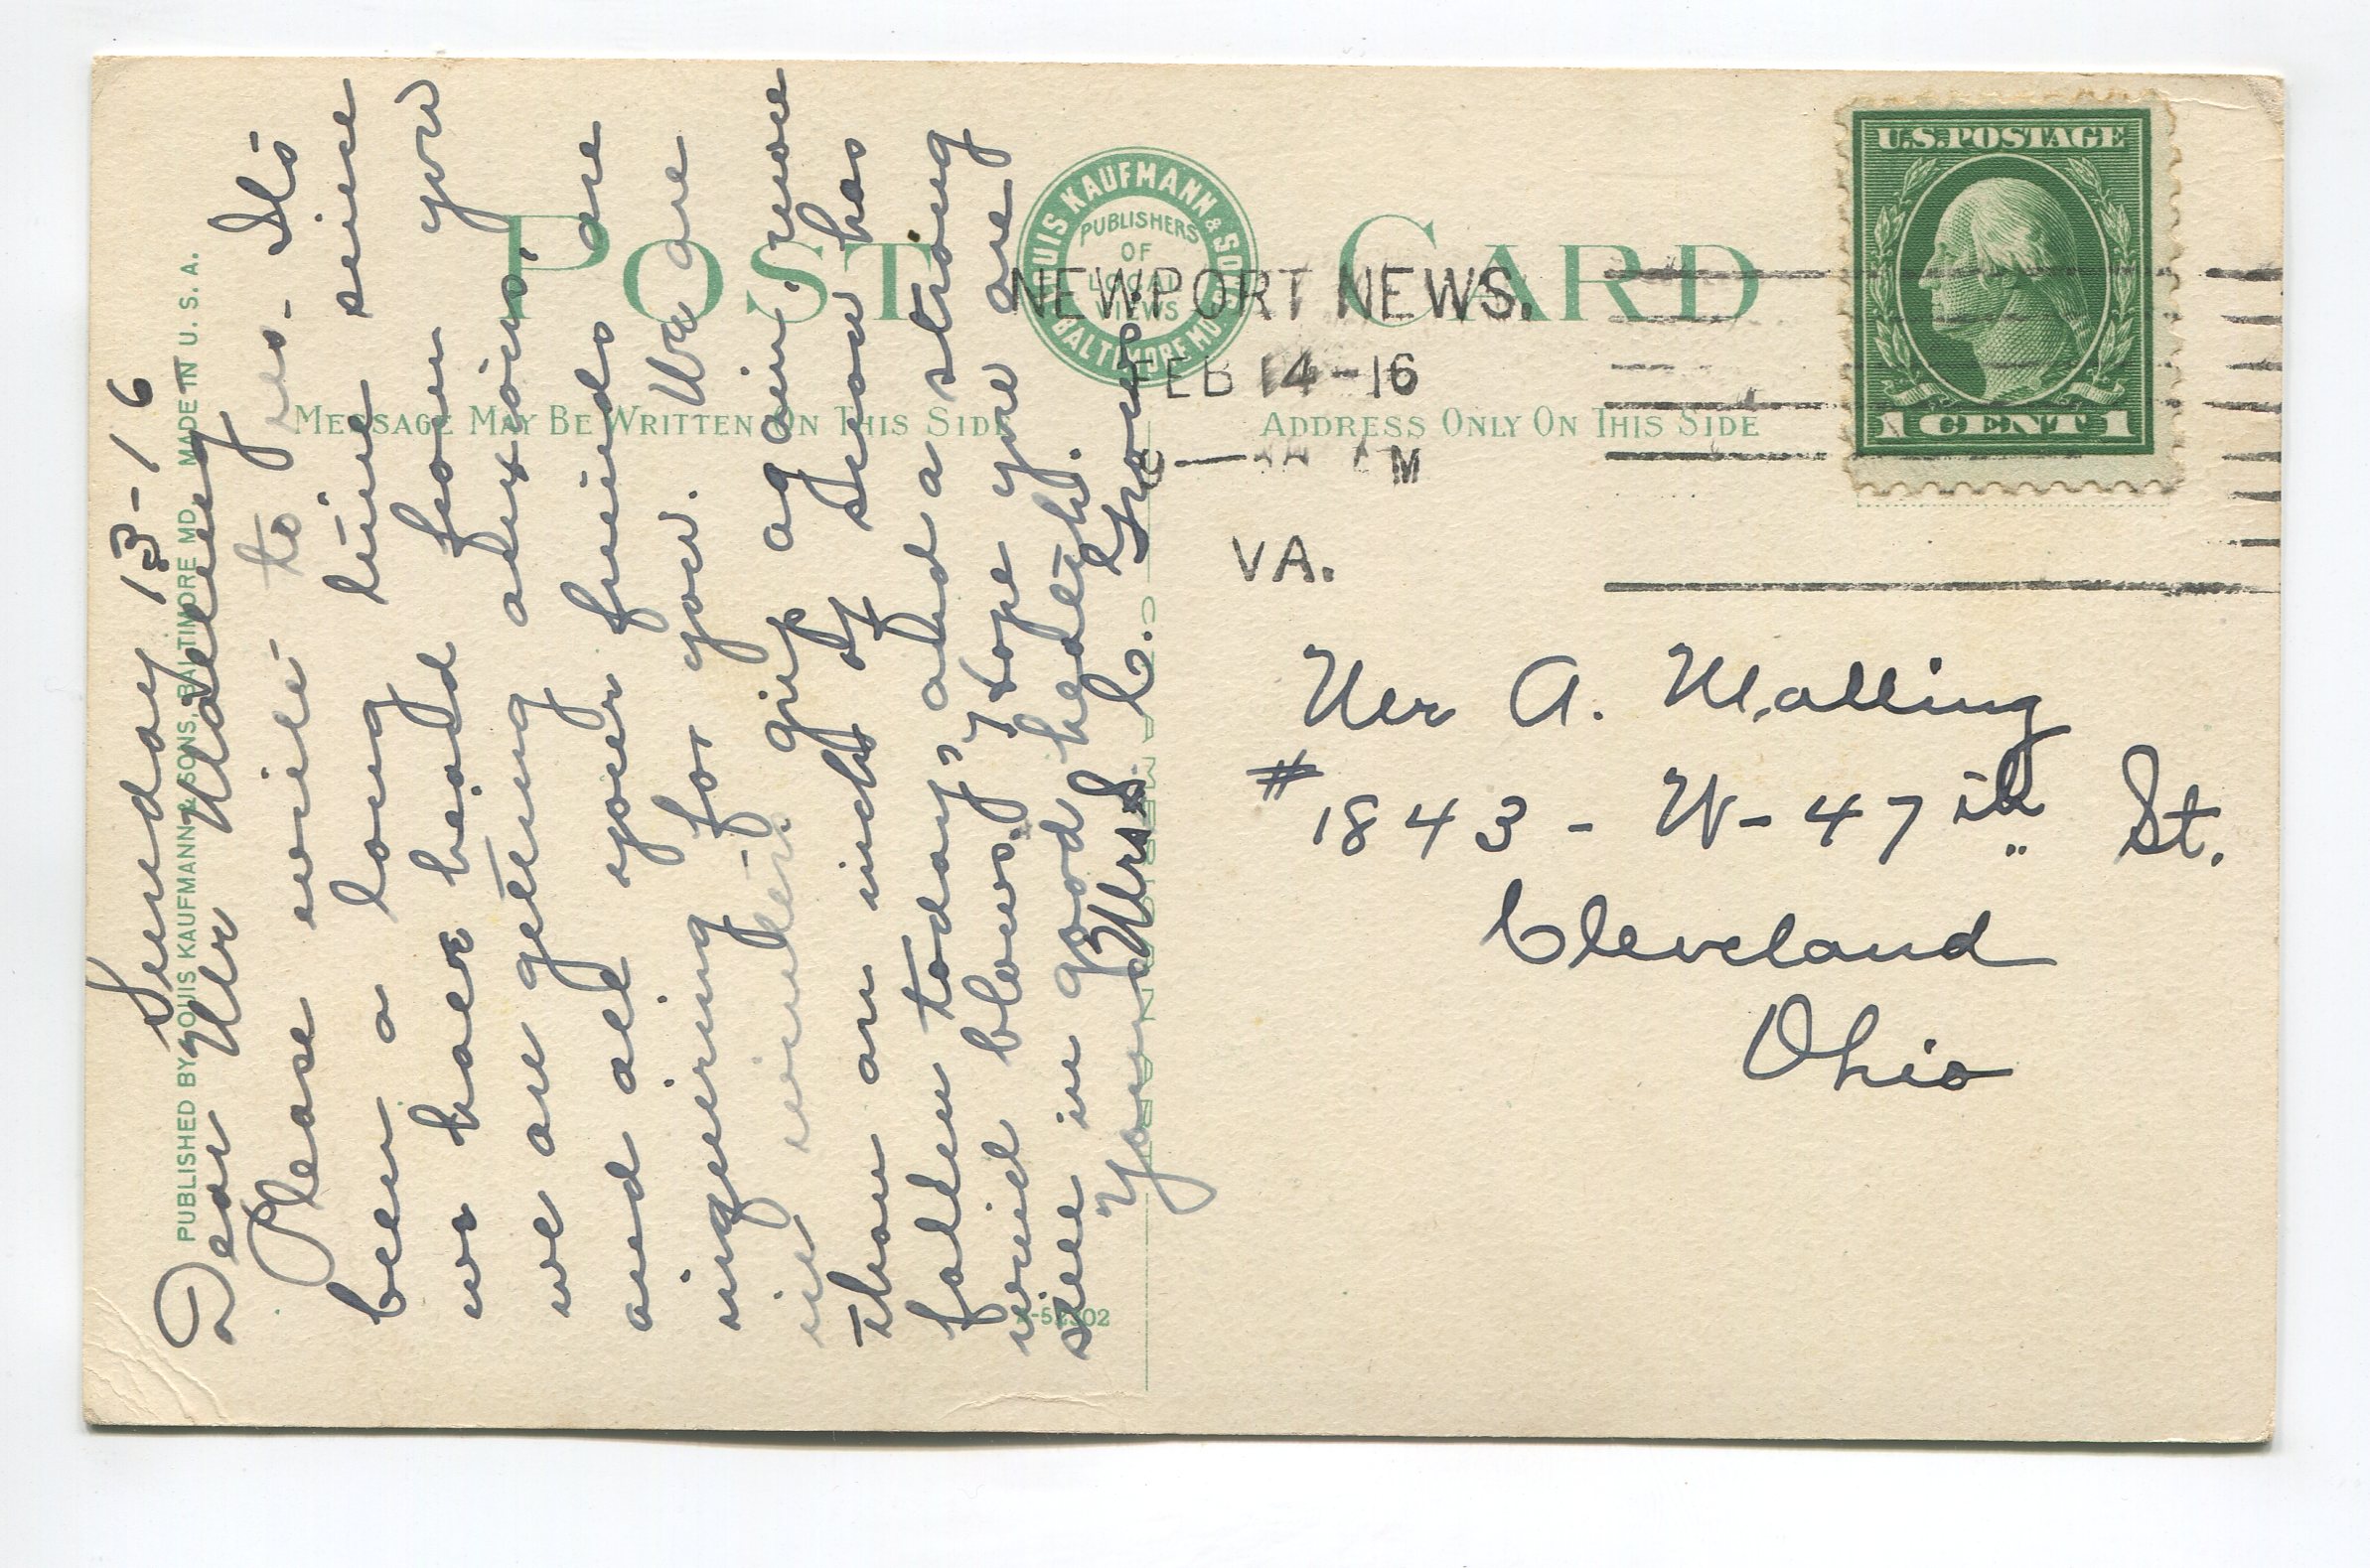 POST CARD
LOUIS KAUFMANN & SONS
BALTIMORE MD.
PUBLISHERS
OF
LOCAL
VIEWS
MESSAGE MAY BE WRITTEN ON THIS SIDE
ADDRESS ONLY ON THIS SIDE
U.S. POSTAGE
1 CENT 1
NEWPORT NEWS.
FEB 14-16
M
VA.
PUBLISHED BY LOUIS KAUFMANN & SONS, BALTIMORE MD. MADE IN U. S. A.
Sunday 13-16
Dear Mr Malling
Please write to us - Its
been a long time since
we have heard from you
we are getting anxious.
and all your friends are
inquiring for you. We are
in winters grip again. more
than an inch of snow has
fallen today, and a strong
wind blows. I hope you are
still in good health.
Yours Mrs C.
Mr A. Malling
# 1843 - W - 47th St.
Cleveland
Ohio